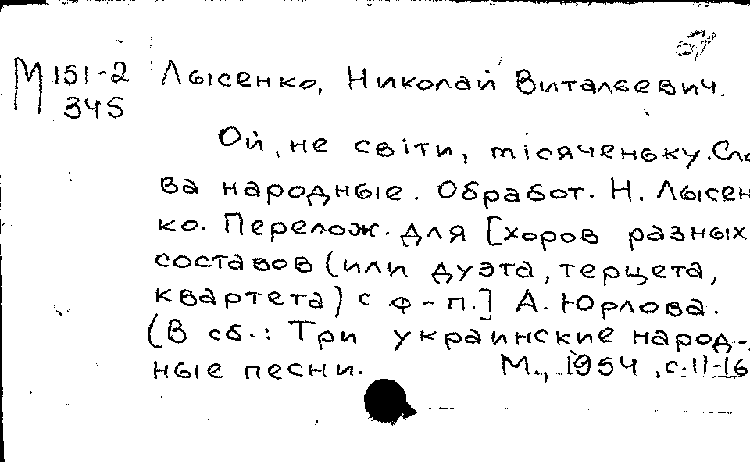 М 151-2 Лысенко, Николай Виталевич.
345
Ой, не світи, місяченьку. Сло
ва народные. Обработ. Н. Лысен
ко. Перелож. для [хоров разных
составов (или дуэта, терцета,
квартета) с ф-п.] А. Юрлова.
(В сб.: Три украинские народ-
ные песни. М., 1954, с. 11-16